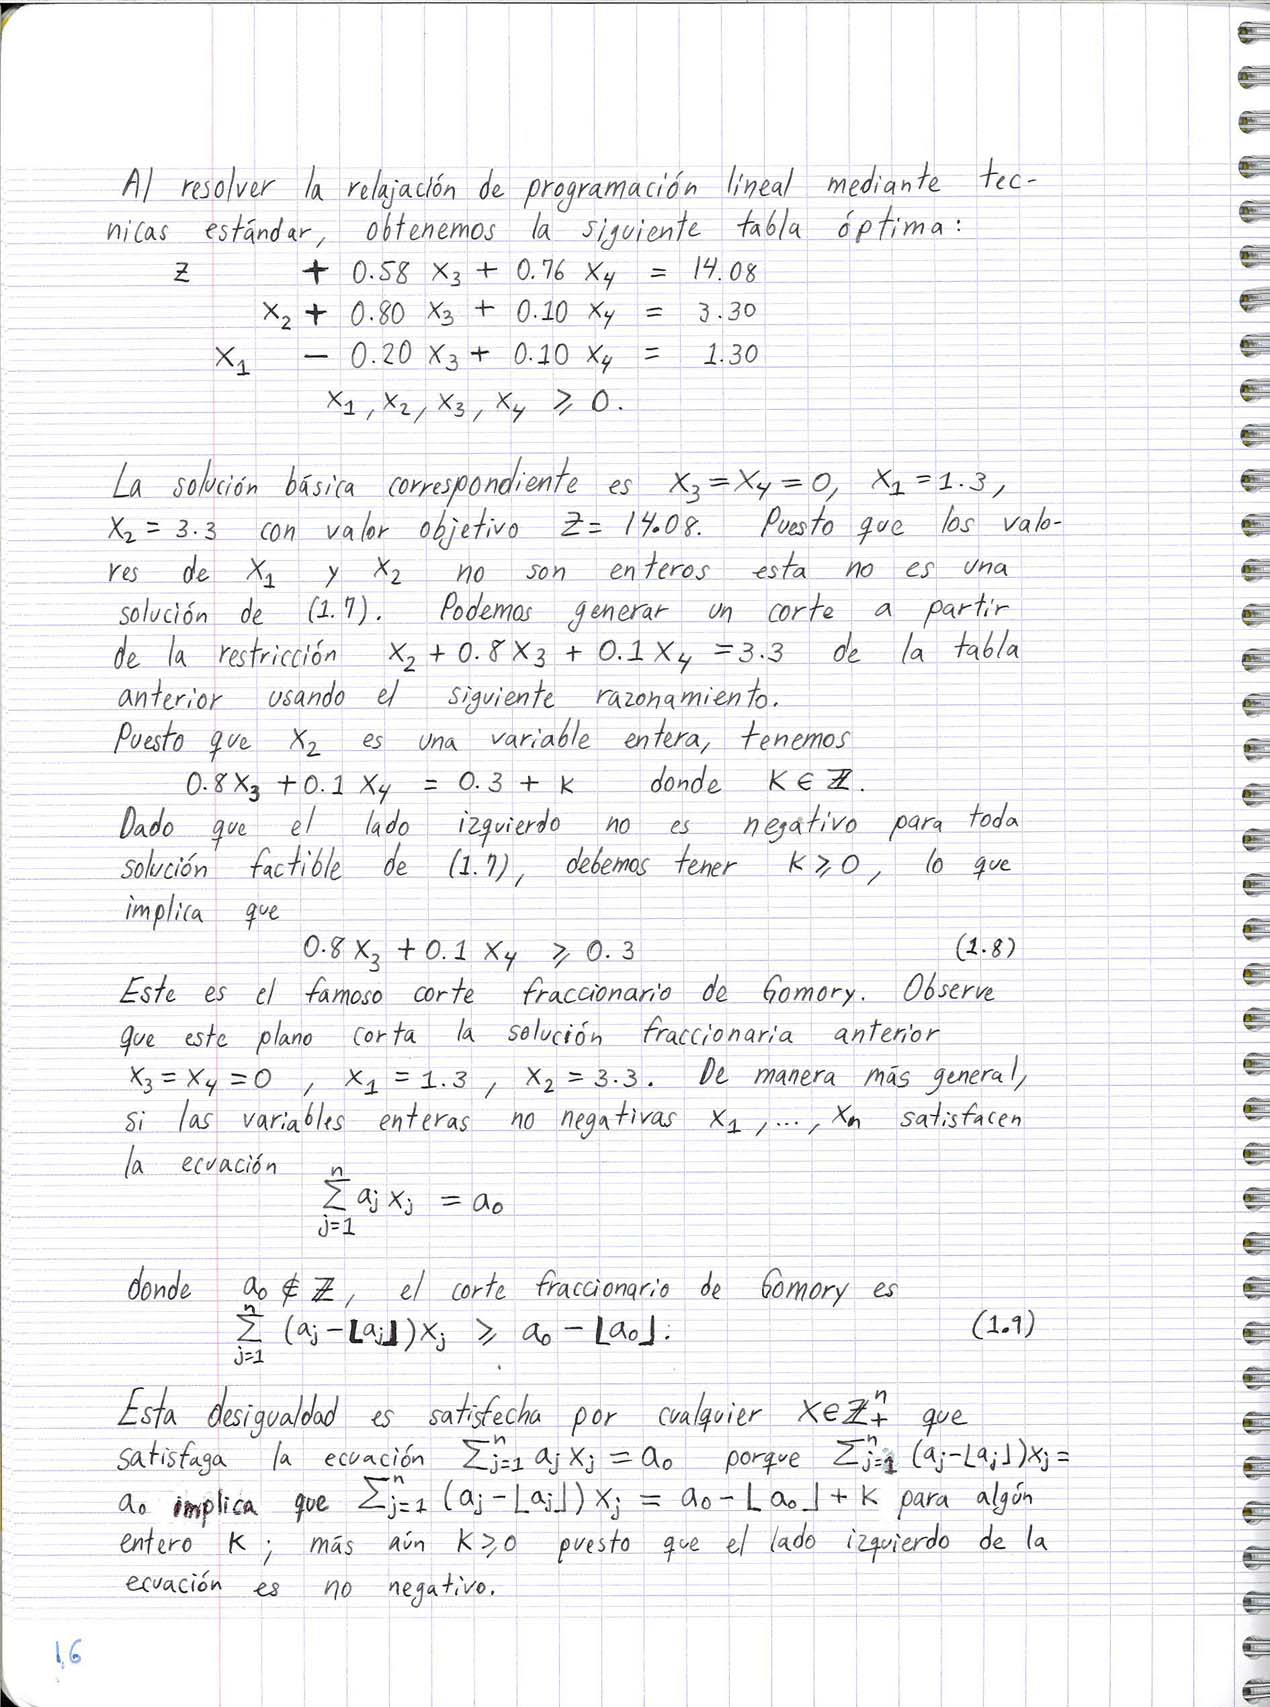 Al resolver la relajación de programación lineal mediante tec-
nicas estándar, obtenemos la siguiente tabla óptima:
z + 0.58 x₃ + 0.76 x₄ = 14.08
x₂ + 0.80 x₃ + 0.10 x₄ = 3.30
x₁ - 0.20 x₃ + 0.10 x₄ = 1.30
x₁, x₂, x₃, x₄ ≥ 0.
La solución básica correspondiente es x₃ = x₄ = 0, x₁ = 1.3,
x₂ = 3.3 con valor objetivo z = 14.08. Puesto que los valo-
res de x₁ y x₂ no son enteros esta no es una
solución de (1.7). Podemos generar un corte a partir
de la restricción x₂ + 0.8 x₃ + 0.1 x₄ = 3.3 de la tabla
anterior usando el siguiente razonamiento.
Puesto que x₂ es una variable entera, tenemos
0.8 x₃ + 0.1 x₄ = 0.3 + k donde k ∈ ℤ.
Dado que el lado izquierdo no es negativo para toda
solución factible de (1.7), debemos tener k ≥ 0, lo que
implica que
0.8 x₃ + 0.1 x₄ ≥ 0.3 (1.8)
Este es el famoso corte fraccionario de Gomory. Observe
que este plano corta la solución fraccionaria anterior
x₃ = x₄ = 0, x₁ = 1.3, x₂ = 3.3. De manera más general,
si las variables enteras no negativas x₁, ..., xₙ satisfacen
la ecuación
∑_{j=1}^{n} aⱼ xⱼ = a₀
donde a₀ ∉ ℤ, el corte fraccionario de Gomory es
∑_{j=1}^{n} (aⱼ - ⌊aⱼ⌋) xⱼ ≥ a₀ - ⌊a₀⌋. (1.9)
Esta desigualdad es satisfecha por cualquier x ∈ ℤ₊ⁿ que
satisfaga la ecuación ∑_{j=1}^{n} aⱼ xⱼ = a₀ porque ∑_{j=1}^{n} (aⱼ - ⌊aⱼ⌋) xⱼ =
a₀ implica que ∑_{j=1}^{n} (aⱼ - ⌊aⱼ⌋) xⱼ = a₀ - ⌊a₀⌋ + k para algún
entero k; más aún k ≥ 0 puesto que el lado izquierdo de la
ecuación es no negativo.
16